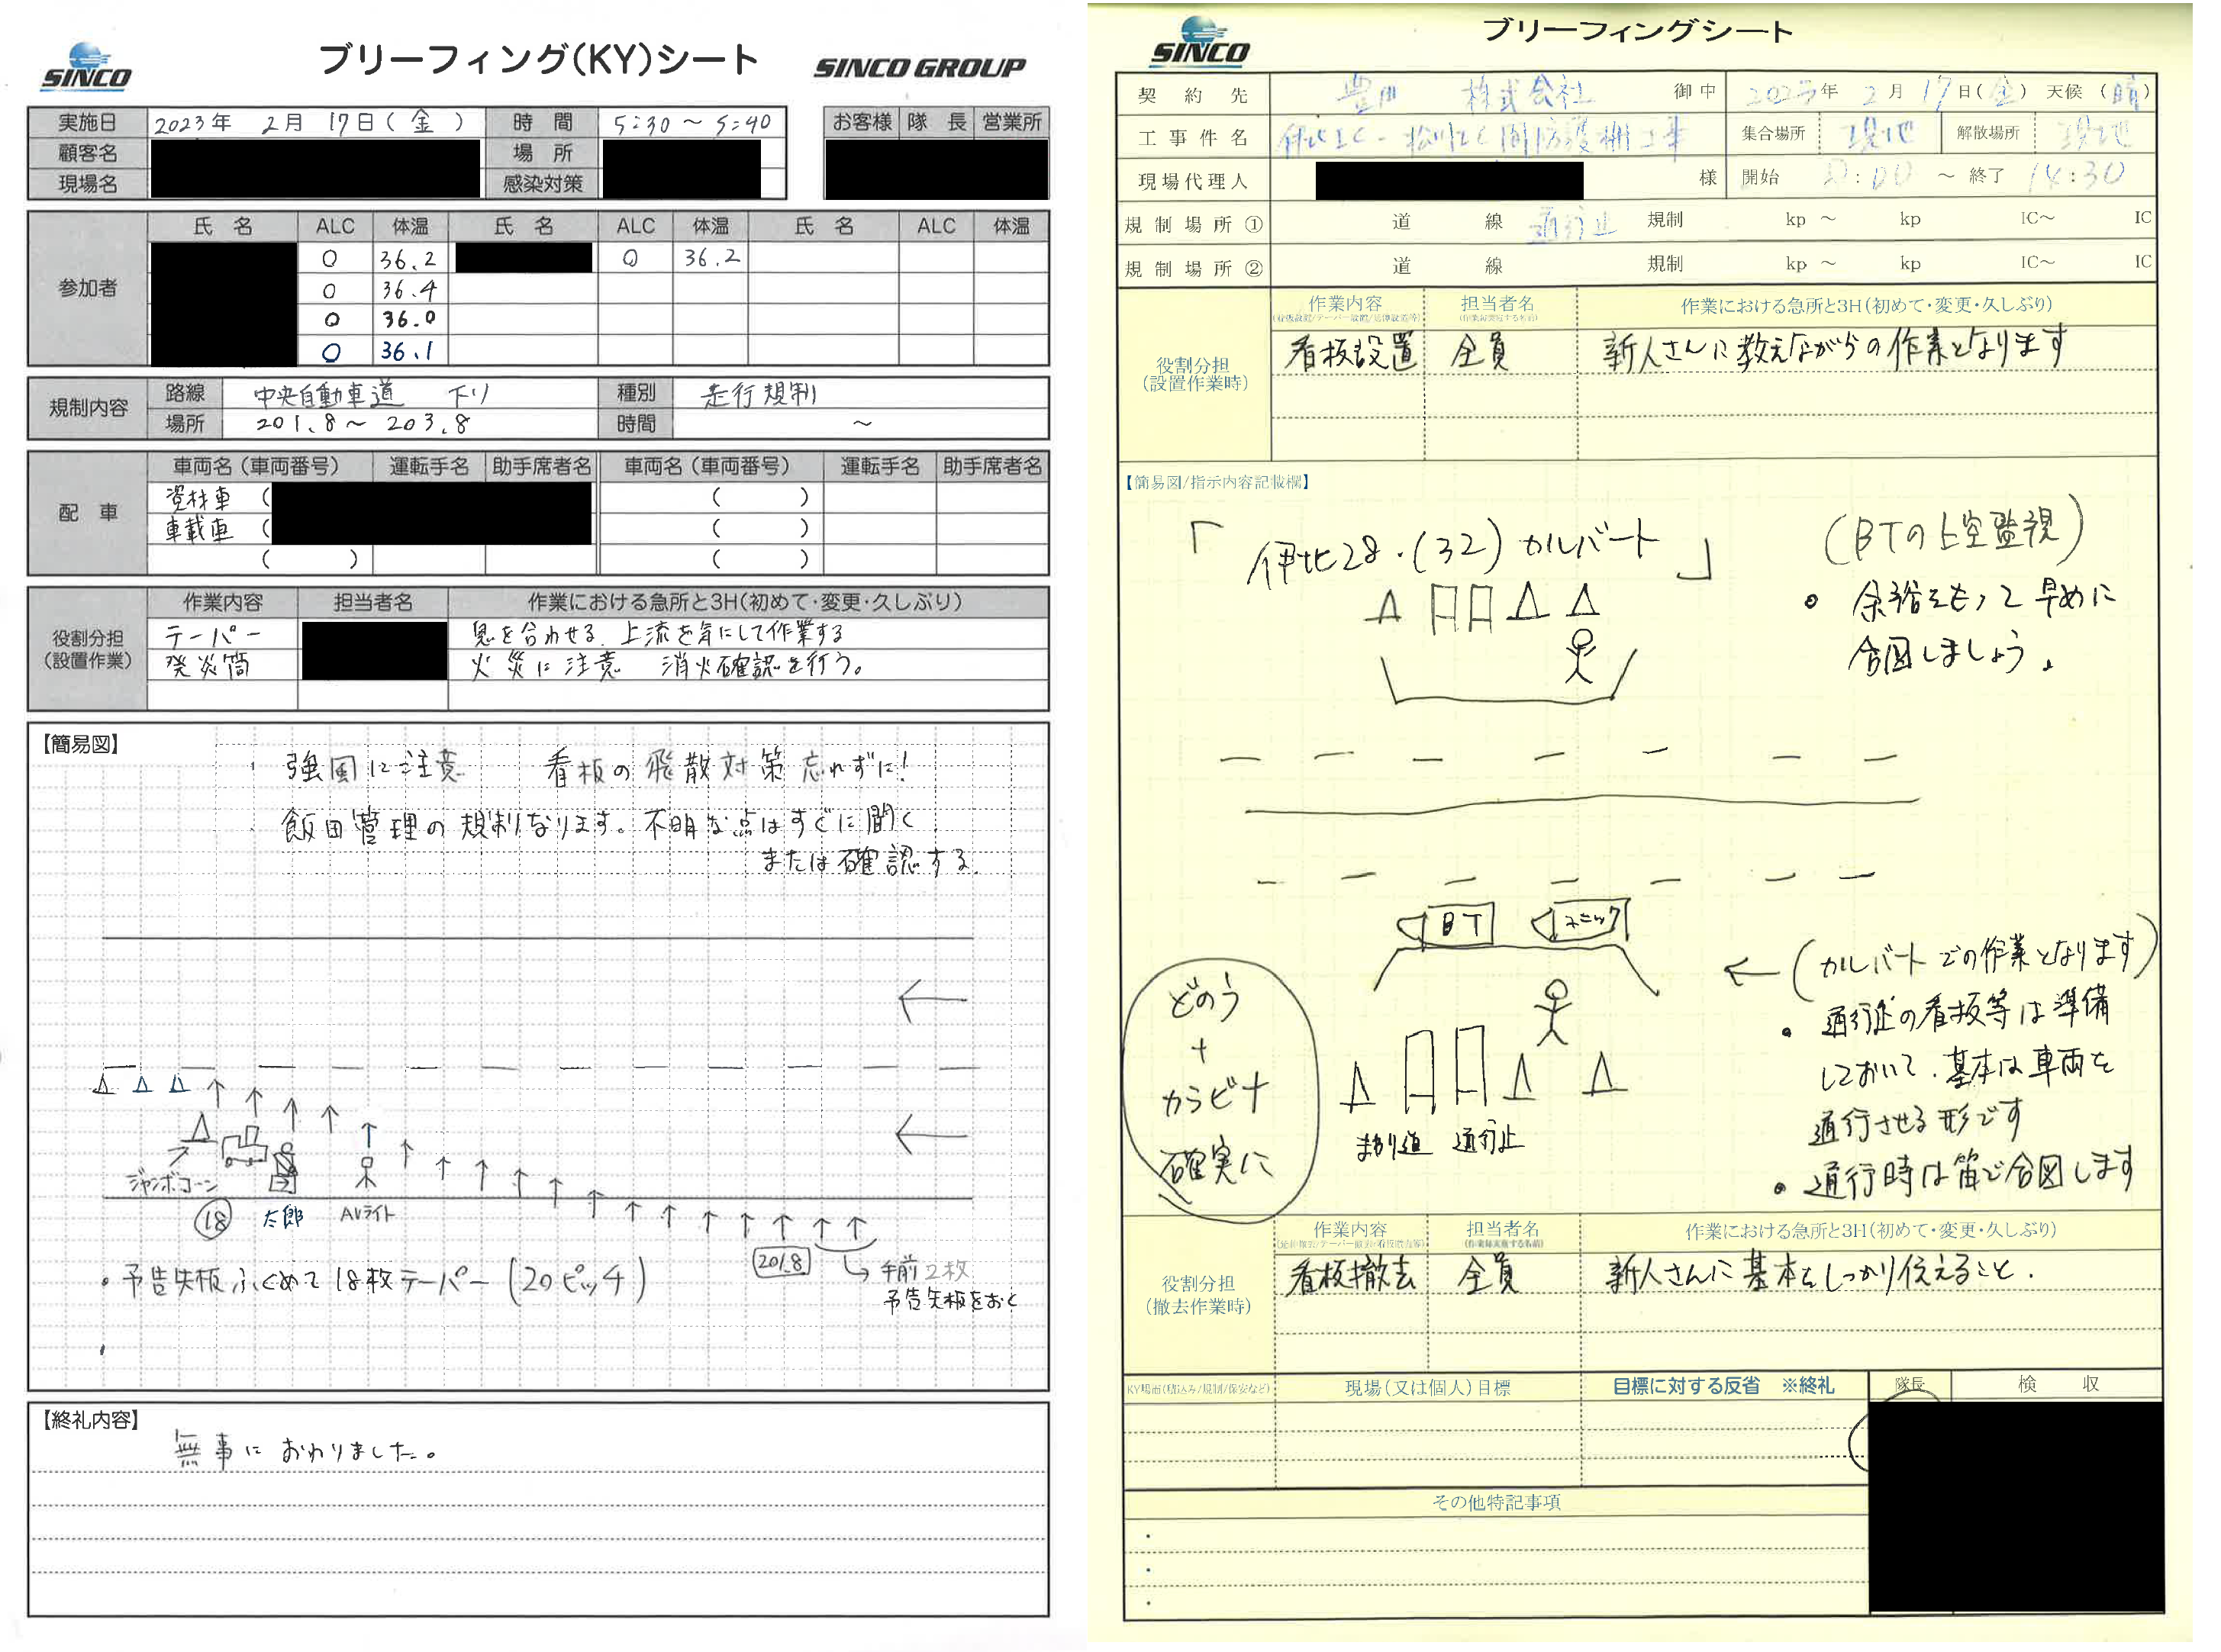 SINCO
ブリーフィング(KY)シート
SINCO GROUP
実施日 2023年 2月 17日(金) 時間 5:30～5:40 お客様 隊長 営業所
顧客名 場所
現場名 感染対策
参加者
氏名 ALC 体温 氏名 ALC 体温 氏名 ALC 体温
○ 36.2 ○ 36.2
○ 36.4
○ 36.0
○ 36.1
規制内容
路線 中央自動車道 下り 種別 走行規制
場所 201.8～203.8 時間 ～
配車
車両名(車両番号) 運転手名 助手席者名 車両名(車両番号) 運転手名 助手席者名
資材車 ( ( )
車載車 ( ( )
( ) ( )
役割分担
(設置作業)
作業内容 担当者名 作業における急所と3H(初めて・変更・久しぶり)
テーパー 息を合わせる 上流を気にして作業する
発炎筒 火災に注意 消火確認を行う。
【簡易図】
・強風に注意 看板の飛散対策忘れずに!
・飯田管理の規制なります。不明な点はすぐに聞く
または確認する。
ジャンボコーン
⑱ 太郎 AVライト
201.8
手前2枚
予告矢板をおく
・予告矢板ふくめて18枚テーパー(20ピッチ)
【終礼内容】
無事におわりました。
SINCO
ブリーフィングシート
契約先 豊田 株式会社 御中 2023年 2月 17日(金) 天候(晴)
工事件名 伊北IC-松川IC間防護柵工事 集合場所 現地 解散場所 現地
現場代理人 様 開始 :00 ～ 終了 14:30
規制場所① 道 線 通行止 規制 kp ～ kp IC～ IC
規制場所② 道 線 規制 kp ～ kp IC～ IC
役割分担
(設置作業時)
作業内容 担当者名 作業における急所と3H(初めて・変更・久しぶり)
看板設置 全員 新人さんに教えながらの作業となります
【簡易図/指示内容記載欄】
「伊北28・(32)カルバート」
(BTの上空監視)
・余裕をもって早めに
合図しましょう。
BT ユニック
どのう
+
カラビナ
確実に
まわり道 通行止
← (カルバートでの作業となります)
・通行止の看板等は準備
しておいて、基本は車両を
通行させる形です
・通行時は笛で合図します
役割分担
(撤去作業時)
作業内容 担当者名 作業における急所と3H(初めて・変更・久しぶり)
看板撤去 全員 新人さんに基本をしっかり伝えること.
KY場面(積込み/規制/保安など) 現場(又は個人)目標 目標に対する反省 ※終礼 隊長 検収
その他特記事項
・
・
・